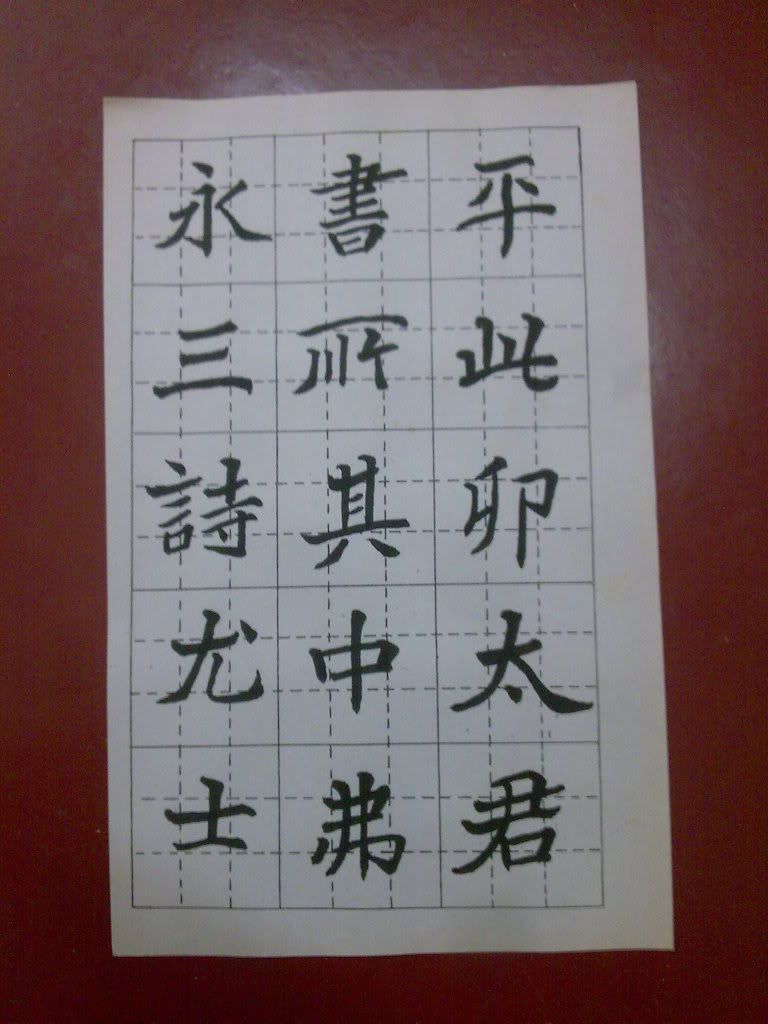 平此卯太君
書所其中弗
永三詩尤士